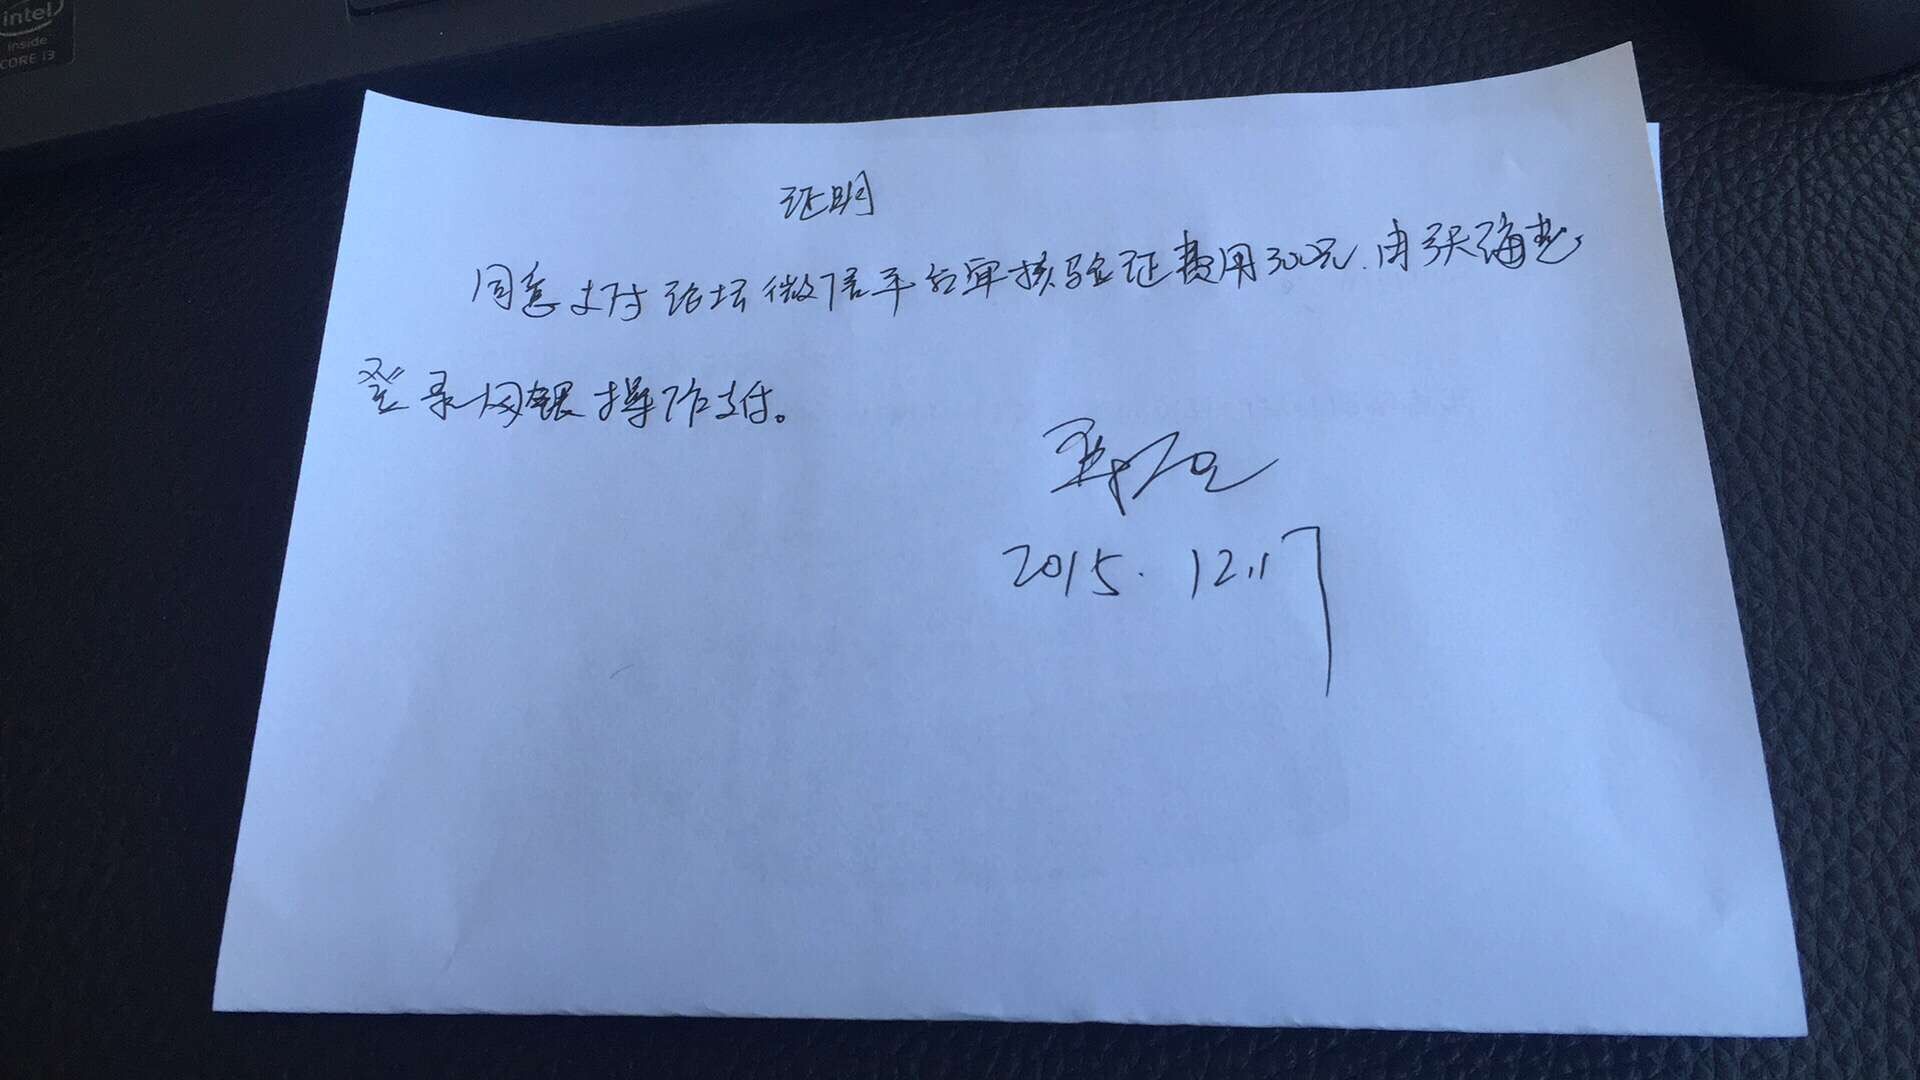 intel
inside
CORE i3
证明
同意支付论坛微信平台审核验证费用300元.由张海
登录网银操作支付。
2015.12.17